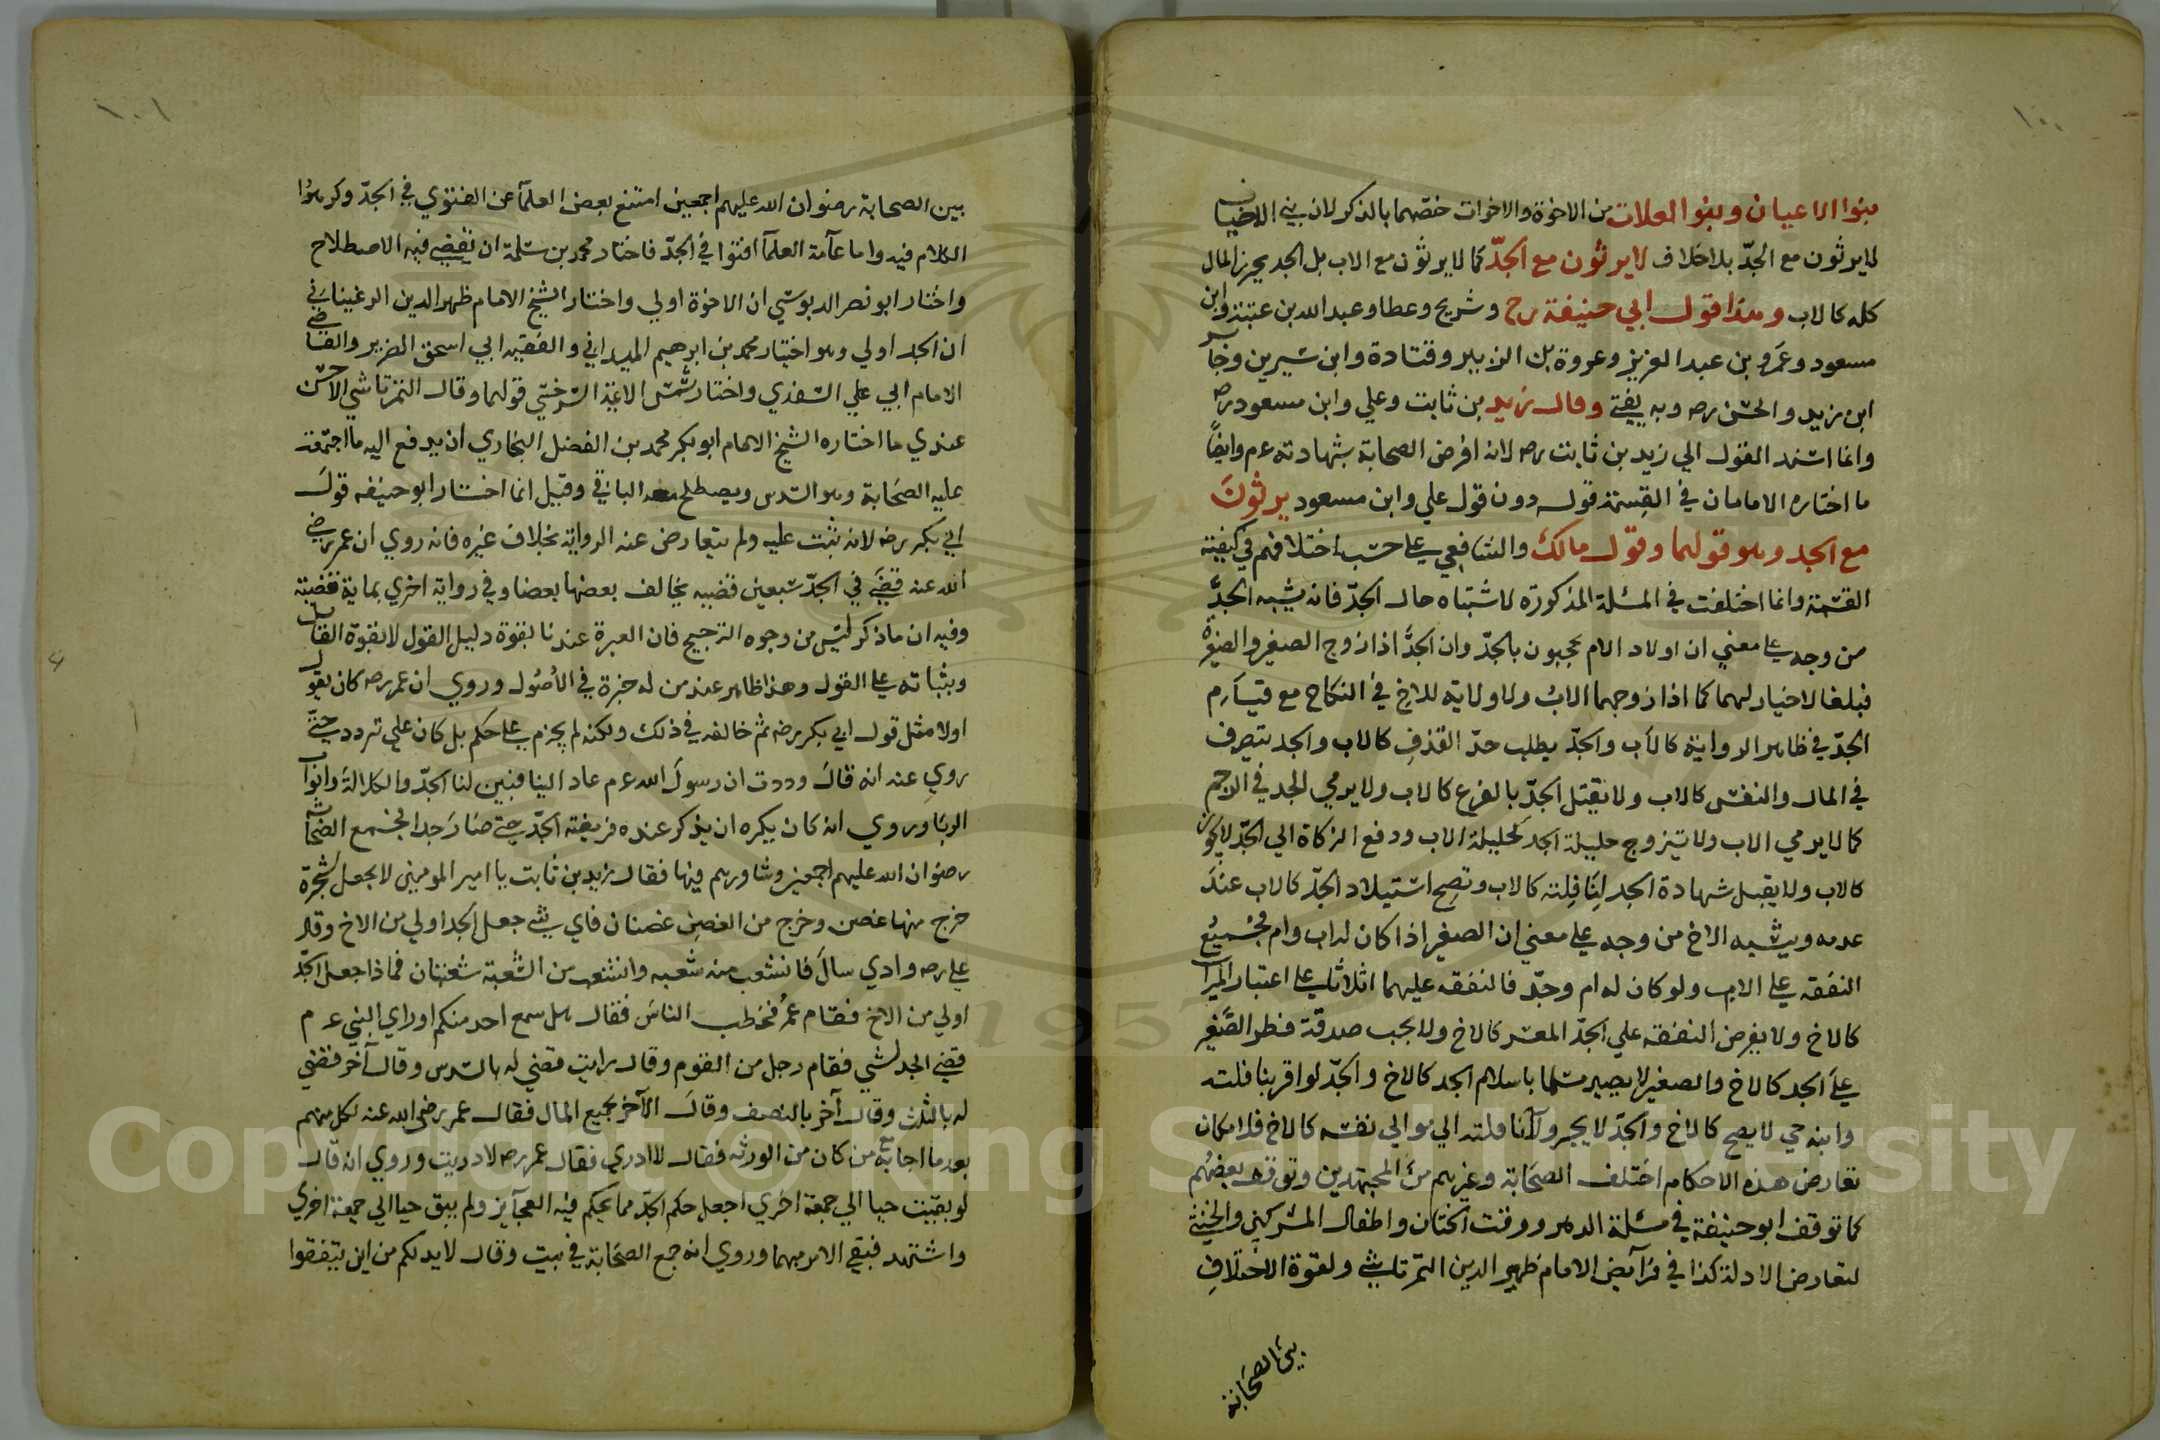 ١٠٠
بنوا الاعيان وبنو العلات من الاخوة والاخوات خصهما بالذكر لان بني الاخياف
لايرثون مع الجدّ بلا خلاف لايرثون مع الجدّ كما لايرثون مع الاب بل الجد يحرز المال
كله كالاب وهذا قول ابي حنيفة رح وشريح وعطا وعبد الله بن عتبة وابن
مسعود وعمرو بن عبد العزيز وعروة بن الزبير وقتادة وابن سيرين وجابر
ابن زيد والحسن رصه وبه يفتي وقال زيد بن ثابت وعلي وابن مسعود رصه
وانما اسند القول الي زيد بن ثابت رصه لانه افرض الصحابة بشهادته عم وايضاً
ما اختاره الامامان في القسمة قوله دون قول علي وابن مسعود يرثون
مع الجد وهو قولهما وقول مالك والشافعي علي حسب اختلافهم في كيفية
القسمة وانما اختلفت في المسئلة المذكورة لاشتباه حال الجدّ فانه يشبه الجدّ
من وجه علي معني ان اولاد الام يحجبون بالجدّ وان الجدّ اذا زوج الصغير والصغيرة
فبلغا لاخيار لهما كما اذا زوجهما الاب ولا ولاية للاخ في النكاح مع قيام
الجدّ في ظاهر الرواية كالاب والجدّ يطلب حدّ القذف كالاب والجد يتصرف
في المال والنفس كالاب ولا يقتل الجدّ بالفرع كالاب ولا يرمي الجد في الرجم
كما لايرمي الاب ولا يتزوج حليلة الجد كحليلة الاب ودفع الزكاة الي الجدّ لايجوز
كالاب ولا يقبل شهادة الجد لنافلته كالاب وتصح استيلاد الجدّ كالاب عند
عدمه ويشبه الاخ من وجه علي معني ان الصغير اذا كان له اب وام فجميع
النفقه علي الاب ولو كان له ام وجدّ فالنفقه عليهما اثلاثا علي اعتبار الميراث
كالاخ ولا يفرض النفقه علي الجدّ المعسر كالاخ ولا يجب صدقة فطر الصغير
علي الجد كالاخ والصغير لايصير مسلما باسلام الجد كالاخ والجدّ لو اقر بنافلته
وابنه حي لا يصح كالاخ والجدّ لايجر ولاء نافلته الي موالي نفسه كالاخ فلامكان
تعارض هذه الاحكام اختلف الصحابة وغيرهم من المجتهدين وتوقف بعضهم
كما توقف ابو حنيفة في مسئلة الدهر ووقت الختان واطفال المشركين والخنثي
لتعارض الادلة كذا في فرائض الامام ظهير الدين التمرتاشي ولقوة الاختلاف
بين الصحابة
١٠١
بين الصحابة رضوان الله عليهم اجمعين امتنع بعض العلمآ عن الفتوي في الجدّ وكرهوا
الكلام فيه واما عآمة العلمآ افتوا في الجدّ فاختار محمد بن سلمة ان يقضي فيه الاصطلاح
واختار ابو نصر الدبوسي ان الاخوة اولي واختار الشيخ الامام ظهير الدين المرغيناني
ان الجد اولي وهو اختيار محمد بن ابرهيم الميداني والفقيه ابي اسحق الضرير والقاضي
الامام ابي علي السغدي واختار شمس الائمة السرخسي قولهما وقال التمرتاشي الاحسن
عندي ما اختاره الشيخ الامام ابو بكر محمد بن الفضل البخاري ان يدفع اليه ما اجتمعت
عليه الصحابة وهو السدس ويصطلح معه الباقي وقيل انما اختار ابو حنيفه قول
ابي بكر رضه لانه ثبت عليه ولم يتعارض عنه الرواية بخلاف غيره فانه روي ان عمر رضي
الله عنه قضي في الجدّ سبعين قضيه يخالف بعضها بعضا وفي رواية اخري بماية قضية
وفيه ان ماذكر ليس من وجوه الترجيح فان العبرة عندنا لقوة دليل القول لا لقوة القائل
وبثباته علي القول وهذا ظاهر عند من له خبرة في الأصول وروي ان عمر رصه كان يقول
اولا مثل قول ابي بكر رضه ثم خالفه في ذلك ولكنه لم يجزم علي حكم بل كان علي تردد حتي
روي عنه انه قال وددت ان رسول الله عم عاد الينا فبين لنا الجدّ والكلالة وابواب
الربا وروي انه كان يكره ان يذكر عنده فريضة الجدّ حتي صار جدا فجمع الصحابة
رضوان الله عليهم اجمعين وشاورهم فيها فقال زيد بن ثابت يا امير المومنين لا يجعل شجرة
خرج منها غصن وخرج من الغصن غصنان فاي شي جعل الجد اولي من الاخ وقال
علي رصه وادي سال فانشعب منه شعبه وانشعب من الشعبة شعبتان فماذا جعل الجدّ
اولي من الاخ فقام عمر فخطب الناس فقال هل سمع احد منكم او راي النبي عم
قضي الجد لشي فقام رجل من القوم وقال رايت قضي له بالسدس وقال آخر قضي
له بالثلث وقال آخر بالنصف وقال الآخر بجميع المال فقال عمر رضي الله عنه لكل منهم
بعد ما اجابه من كان من الورثه فقال لاادري فقال عمر رصه لادريت وروي انه قال
لو بقيت حيا الي جمعة اخري اجعل حكم الجدّ مما يحكم فيه العجآيز ولم يبق حيا الي جمعة اخري
واشتهد فبقي الامر مبهما وروي انه جمع الصحابة في بيت وقال لابد لكم من اين يتفقوا
Copyright © King Saud University
1957